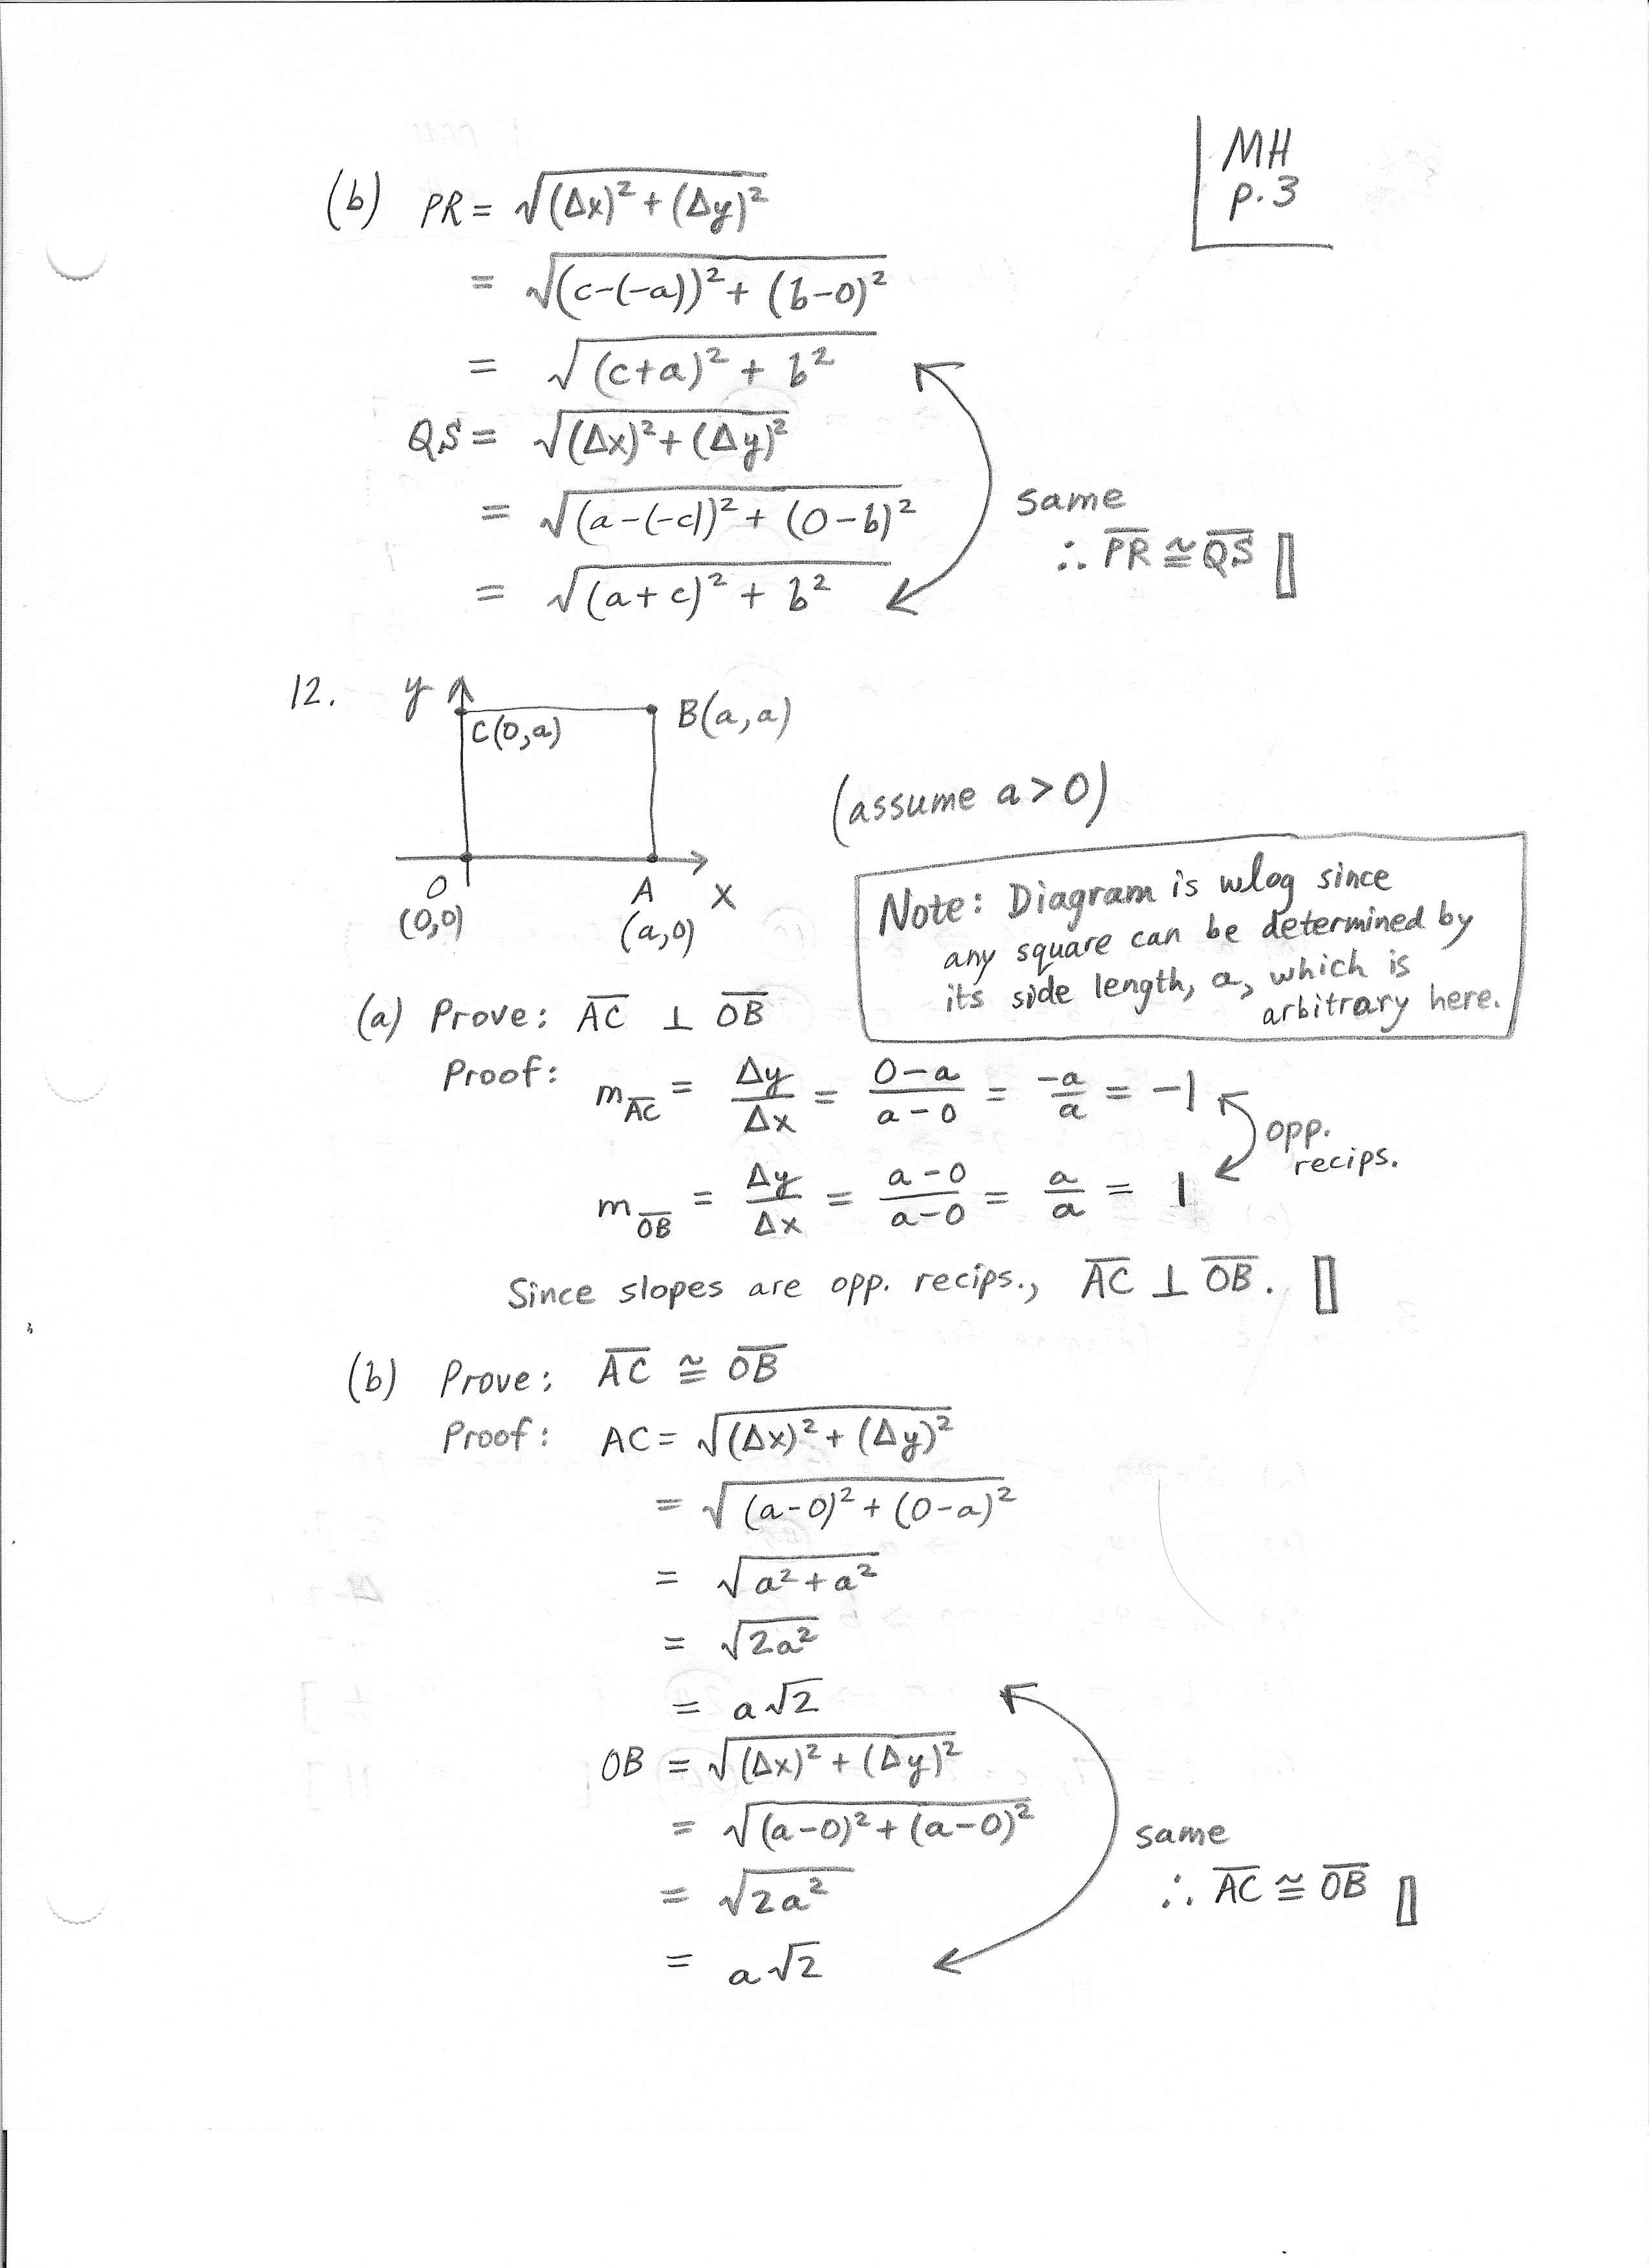 MH
p.3
(b) PR = √((Δx)² + (Δy)²)
= √((c-(-a))² + (b-0)²)
= √((c+a)² + b²)
QS = √((Δx)² + (Δy)²)
= √((a-(-c))² + (0-b)²)
same
∴ P̅R̅ ≅ Q̅S̅ ▯
= √((a+c)² + b²)
12.
y
C(0,a)
B(a,a)
(assume a>0)
O
(0,0)
A
(a,0)
x
Note: Diagram is wlog since
any square can be determined by
its side length, a, which is
arbitrary here.
(a) Prove: A̅C̅ ⊥ O̅B̅
Proof: m_A̅C̅ = Δy/Δx = (0-a)/(a-0) = -a/a = -1
opp.
recips.
m_O̅B̅ = Δy/Δx = (a-0)/(a-0) = a/a = 1
Since slopes are opp. recips., A̅C̅ ⊥ O̅B̅. ▯
(b) Prove: A̅C̅ ≅ O̅B̅
Proof: AC = √((Δx)² + (Δy)²)
= √((a-0)² + (0-a)²)
= √(a² + a²)
= √(2a²)
= a√2
OB = √((Δx)² + (Δy)²)
= √((a-0)² + (a-0)²)
same
= √(2a²)
∴ A̅C̅ ≅ O̅B̅ ▯
= a√2